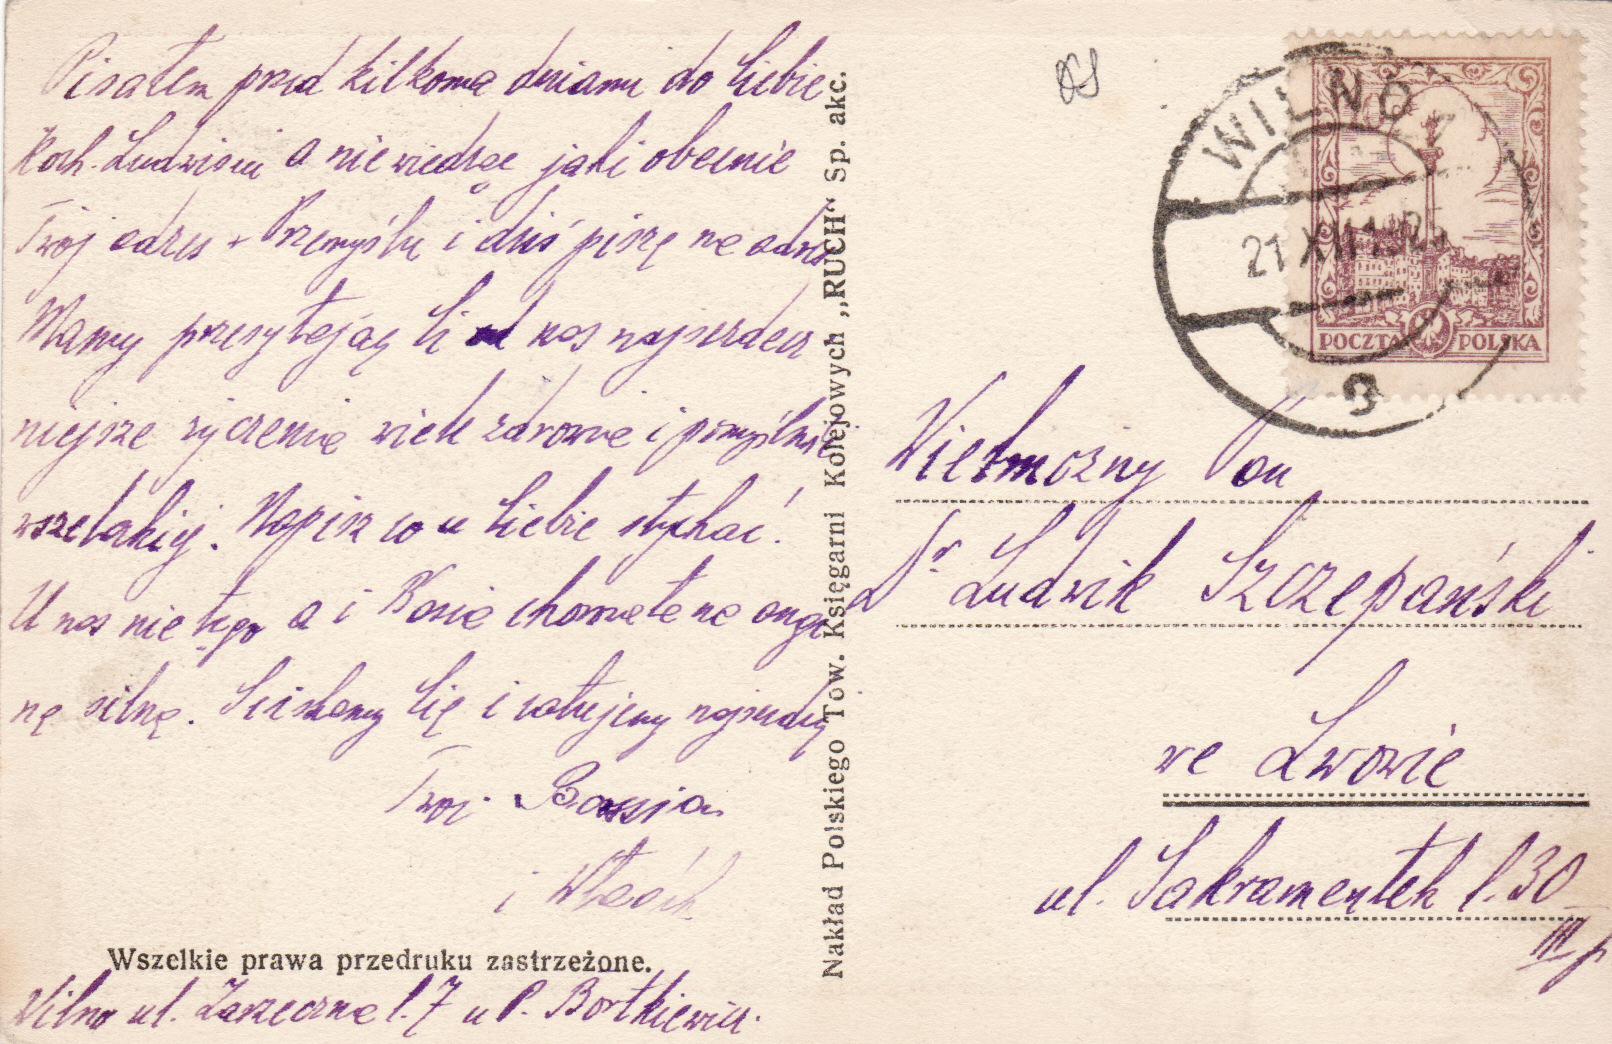 Pisałem przed kilkoma dniami do Ciebie
Koch. Ludwisiu a nie wiedząc jaki obecnie
Twój adres w Przemyślu i dziś piszę na adres
Mamy przesyłając Ci od nas najserdecz
niejsze życzenia wiele zdrowia i pomyślności
wszelakiej. Napisz co u Ciebie słychać.
U nas nie tęgo a i Kasia chorowała na angi
nę silną. Ściskamy Cię i całujemy najserdecz
Twoj
i
Wszelkie prawa przedruku zastrzeżone.
Wilno ul. Zarzeczna l. 7 u P. Bortkiewicz.
Nakład Polskiego Tow. Księgarni Kolejowych „RUCH“ Sp. akc.
WILNO
21 XII
9
POCZTA POLSKA
Wielmożny Pan
Dr Ludwik Szczepański
we Lwowie
ul. Sakramentek l. 30
III p